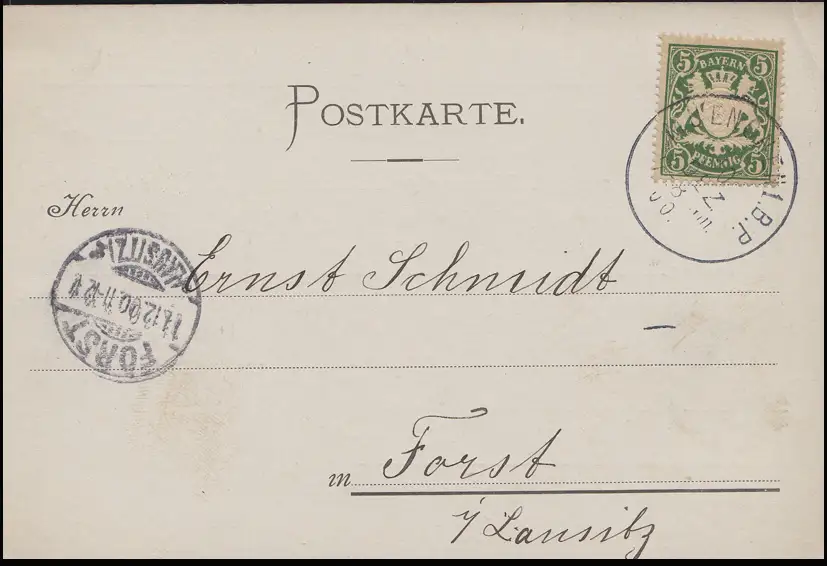 5 BAYERN 5
5 PFENNIG 5
POSTKARTE.
I.B.P.
Herrn
Ernst Schmidt
(LAUSITZ)
11.12.00.11-12
FORST
in Forst
i/Lausitz